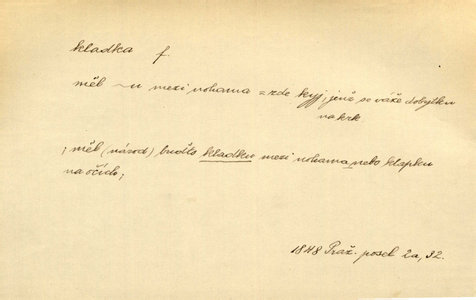 kladka f.
měl ~u mezi nohama = zde kyj, jenž se váže dobytku
na krk
; měl (národ) buďto kladku mezi nohama nebo klapku
na očích;
1848 Praž. posel 2a, 32.